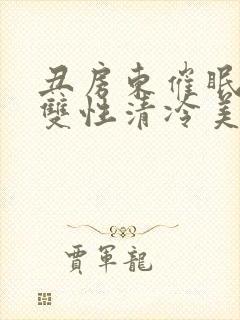 丑房东催眠
雙性清冷美
賈軍龍